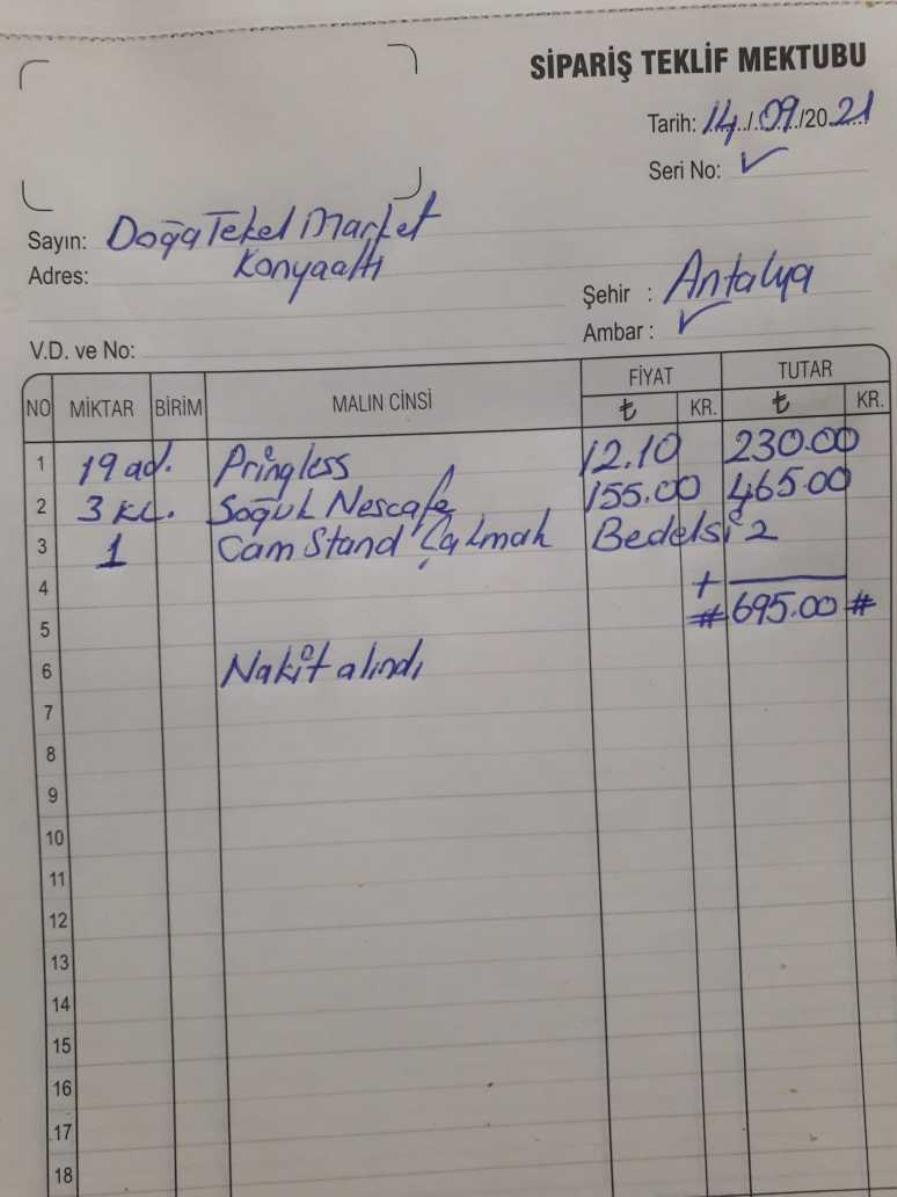 SİPARİŞ TEKLİF MEKTUBU
Tarih: 14/09/2021
Seri No: ✓
Sayın: Doğa Tekel Market
Adres: Konyaaltı
Şehir : Antalya
Ambar : ✓
V.D. ve No:
NO MİKTAR BİRİM MALIN CİNSİ FİYAT TUTAR
₺ KR. ₺ KR.
1 19 ad. Pringless 12.10 230.00
2 3 KL. Soğuk Nescafe 155.00 465.00
3 1 Cam Stand Çakmak Bedelsiz
4 +
5 # 695.00 #
6 Nakit alındı
7
8
9
10
11
12
13
14
15
16
17
18